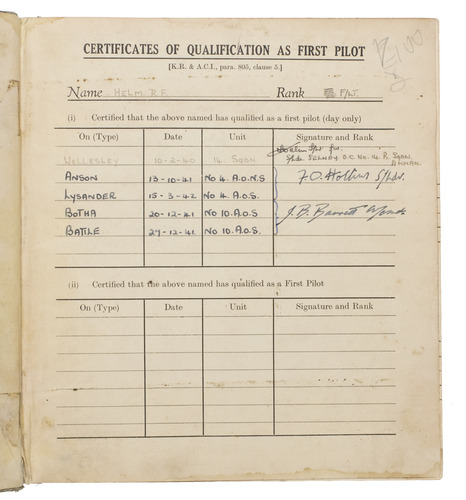 CERTIFICATES OF QUALIFICATION AS FIRST PILOT
[K.R. & A.C.I., para. 805, clause 5.]
Name HELM R F. Rank F/LT.
(i) Certified that the above named has qualified as a first pilot (day only)
On (Type) Date Unit Signature and Rank
WELLESLEY 10-2-40 14 SQDN O.C. No. 14 SQDN
ANSON 13-10-41 No 4 A.O.N.S
LYSANDER 15-3-42 No 4 A.O.S. F.O. Hollins
BOTHA 20-12-41 No 10 A.O.S J.B. Barrett
BATTLE 27-12-41 No 10. A.O.S.
(ii) Certified that the above named has qualified as a First Pilot
On (Type) Date Unit Signature and Rank